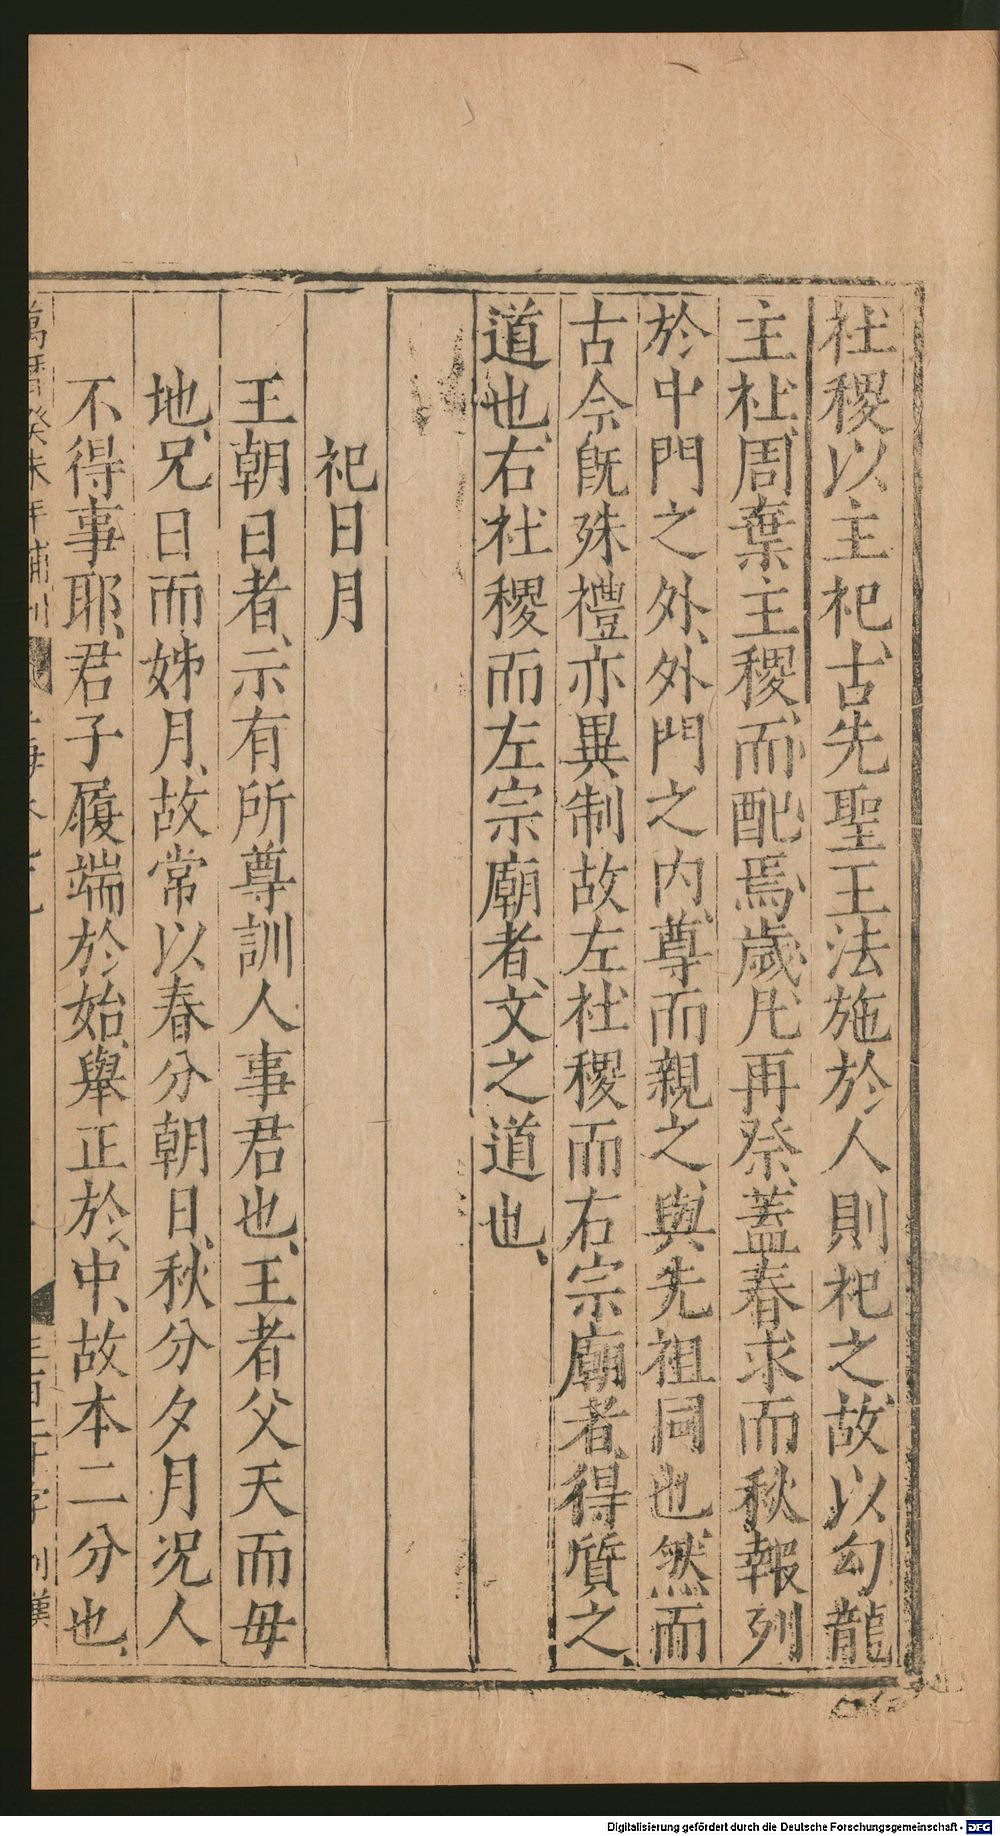 社稷以主祀、古先聖王法施於人則祀之、故以勾龍
主社、周棄主稷、而配焉、歲凡再祭、蓋春求而秋報列
於中門之外、外門之内、尊而親之、與先祖同也、然而
古今既殊禮亦異制故左社稷而右宗廟者、得質之、
道也、右社稷而左宗廟者、文之道也、
祀日月
王朝日者、示有所尊訓人事君也、王者父天而毋
地、兄日而姊月、故常以春分朝日、秋分夕月况人
不得事耶、君子履端於始、舉正於中、故本二分也、
萬曆癸未年補刊
玉海卷
三百二十字
Digitalisierung gefördert durch die Deutsche Forschungsgemeinschaft - DFG